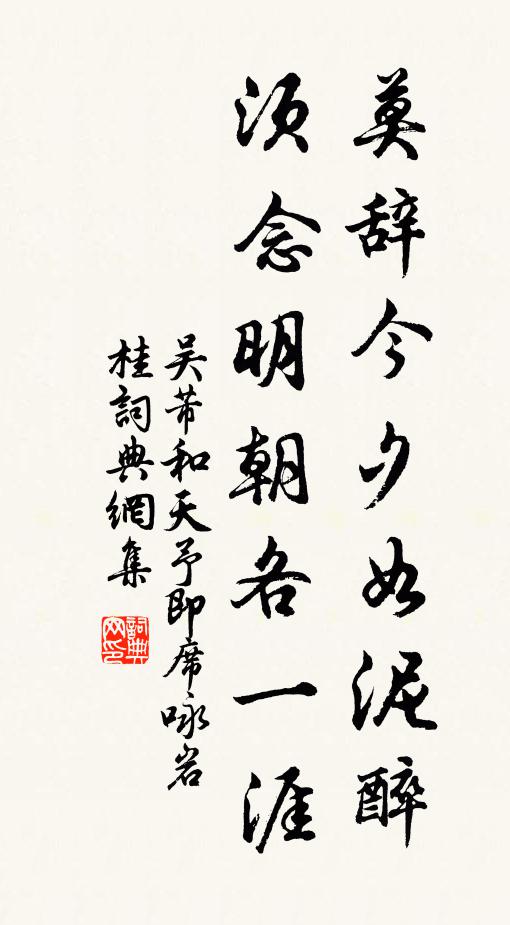 莫辞今夕如泥醉
须念明朝各一涯
吴芾和天予即席咏岩
桂詞典網集
詞典
网印